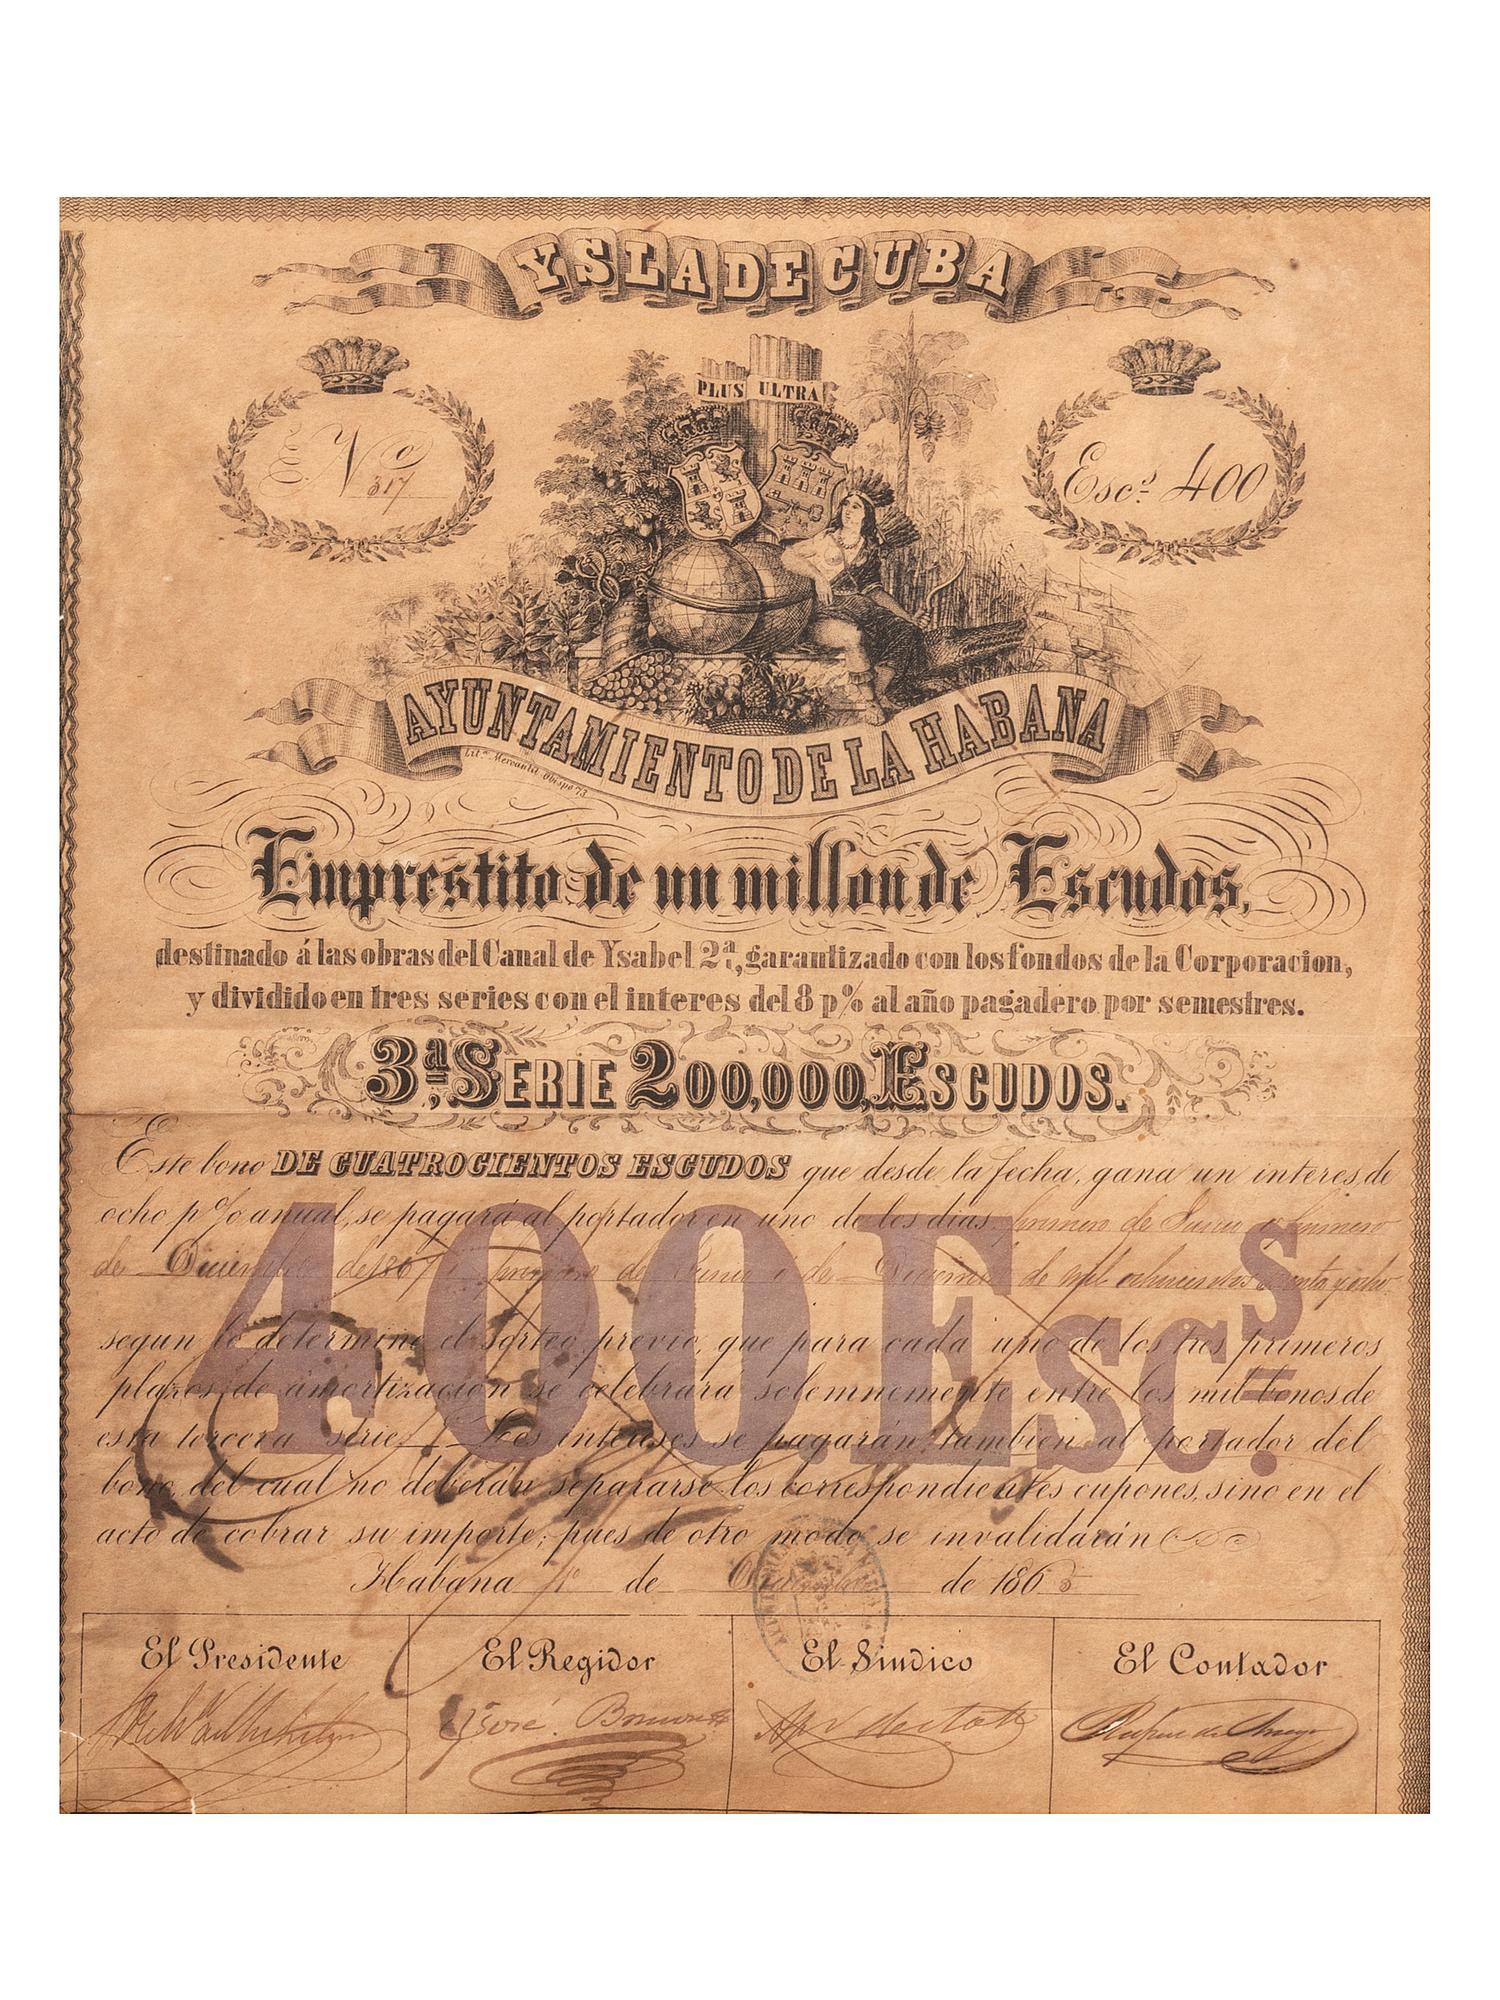 YSLA DE CUBA
PLUS ULTRA
Nº 317
Escs 400
AYUNTAMIENTO DE LA HABANA
Lit.ª Mercantil Obispo 73
Emprestito de un millon de Escudos,
destinado á las obras del Canal de Ysabel 2ª, garantizado con los fondos de la Corporacion,
y dividido en tres series con el interes del 8 p% al año pagadero por semestres.
3ª SERIE 200,000, ESCUDOS.
Este bono DE CUATROCIENTOS ESCUDOS que desde la fecha, gana un interes, de
ocho p% anual, se pagará al portador en uno de los dias primero de Junio o primero
de Diciembre de 1867 primero de Junio o de Diciembre de mil ochocientos sesenta y ocho
400 Escs.
segun lo determine el sorteo previo, que para cada uno de los tres primeros
plazos de amortizacion se celebrara solemnemente entre los mil bonos de
esta tercera série. Los intereses se pagarán tambien al portador del
bono, del cual no deberán separarse los correspondientes cupones, sino en el
acto de cobrar su importe; pues de otro modo se invalidarán
Habana 1º de de 186
El Presidente El Regidor El Sindico El Contador
José